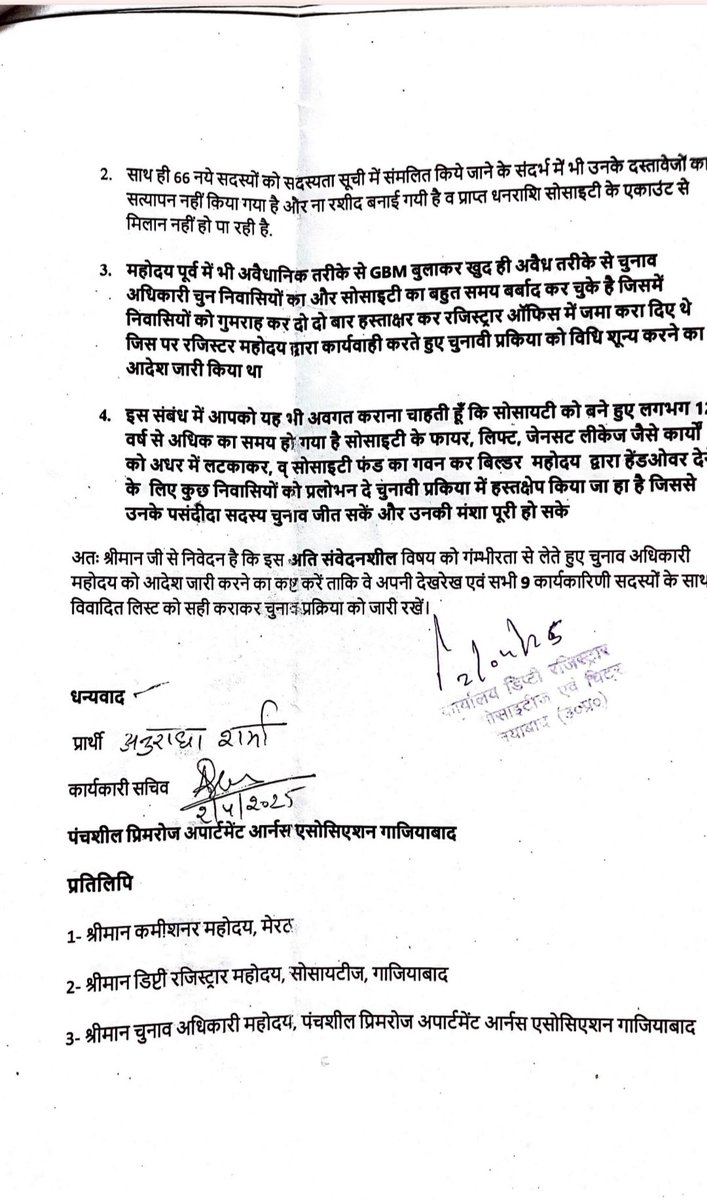 2. साथ ही 66 नये सदस्यों को सदस्यता सूची में संमलित किये जाने के संदर्भ में भी उनके दस्तावेजों का
सत्यापन नहीं किया गया है और ना रशीद बनाई गयी है व प्राप्त धनराशि सोसाइटी के एकाउंट से
मिलान नहीं हो पा रही है.
3. महोदय पूर्व में भी अवैधानिक तरीके से GBM बुलाकर खुद ही अवैध तरीके से चुनाव
अधिकारी चुन निवासियों का और सोसाइटी का बहुत समय बर्बाद कर चुके है जिसमें
निवासियों को गुमराह कर दो दो बार हस्ताक्षर कर रजिस्ट्रार ऑफिस में जमा करा दिए थे
जिस पर रजिस्टर महोदय द्वारा कार्यवाही करते हुए चुनावी प्रकिया को विधि शून्य करने का
आदेश जारी किया था
4. इस संबंध में आपको यह भी अवगत कराना चाहती हूँ कि सोसायटी को बने हुए लगभग
वर्ष से अधिक का समय हो गया है सोसाइटी के फायर, लिफ्ट, जेनसट लीकेज जैसे कार्यों
को अधर में लटकाकर, व् सोसाइटी फंड का गवन कर बिल्डर महोदय द्वारा हेंडओवर
के लिए कुछ निवासियों को प्रलोभन दे चुनावी प्रकिया में हस्तक्षेप किया जा हा है जिससे
उनके पसंदीदा सदस्य चुनाव जीत सकें और उनकी मंशा पूरी हो सके
अतः श्रीमान जी से निवेदन है कि इस अति संवेदनशील विषय को गंम्भीरता से लेते हुए चुनाव अधिकारी
महोदय को आदेश जारी करने का कष्ट करें ताकि वे अपनी देखरेख एवं सभी 9 कार्यकारिणी सदस्यों के साथ
विवादित लिस्ट को सही कराकर चुनाव प्रक्रिया को जारी रखें।
कार्यालय डिप्टी रजिस्ट्रार
सोसाइटीज एवं चिट्स
(उ०प्र०)
धन्यवाद
प्रार्थी अनुराधा शर्मा
कार्यकारी सचिव
2/4/2025
पंचशील प्रिमरोज अपार्टमेंट आर्नस एसोसिएशन गाजियाबाद
प्रतिलिपि
1- श्रीमान कमीशनर महोदय, मेरठ
2- श्रीमान डिप्टी रजिस्ट्रार महोदय, सोसायटीज, गाजियाबाद
3- श्रीमान चुनाव अधिकारी महोदय, पंचशील प्रिमरोज अपार्टमेंट आर्नस एसोसिएशन गाजियाबाद